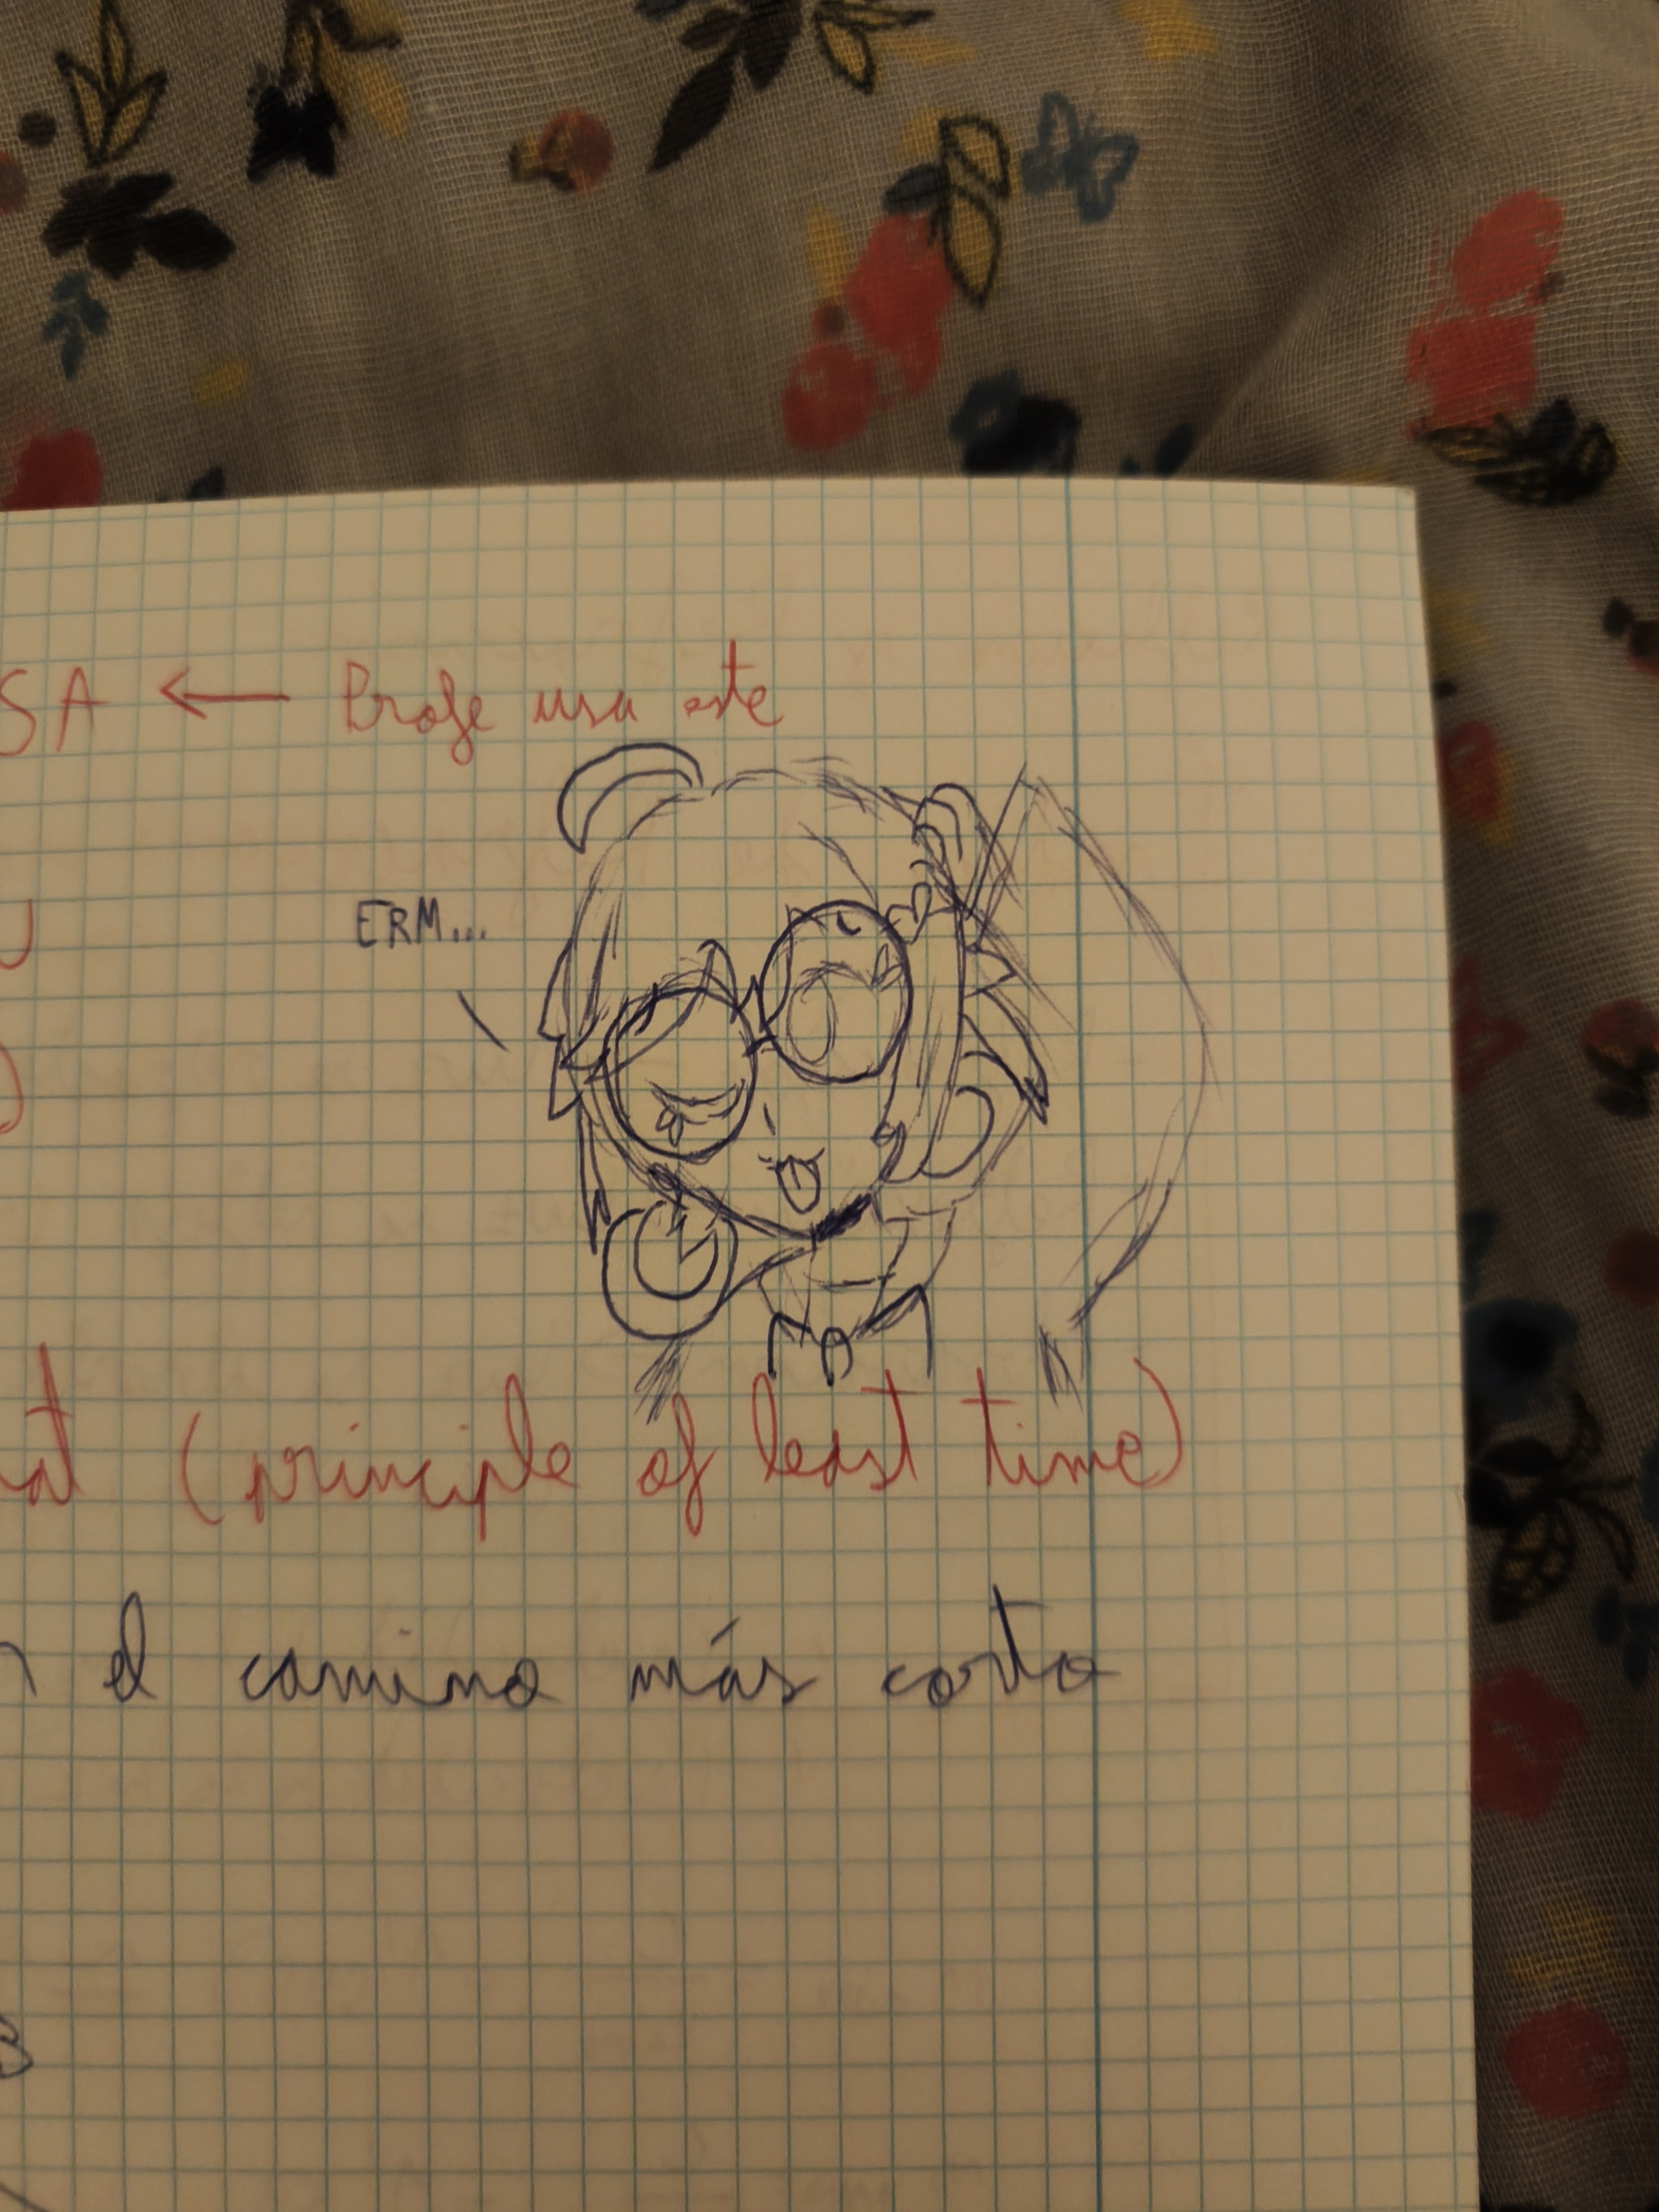 SA ← Profe usa este
ERM...
(principle of least time)
el camino más corto